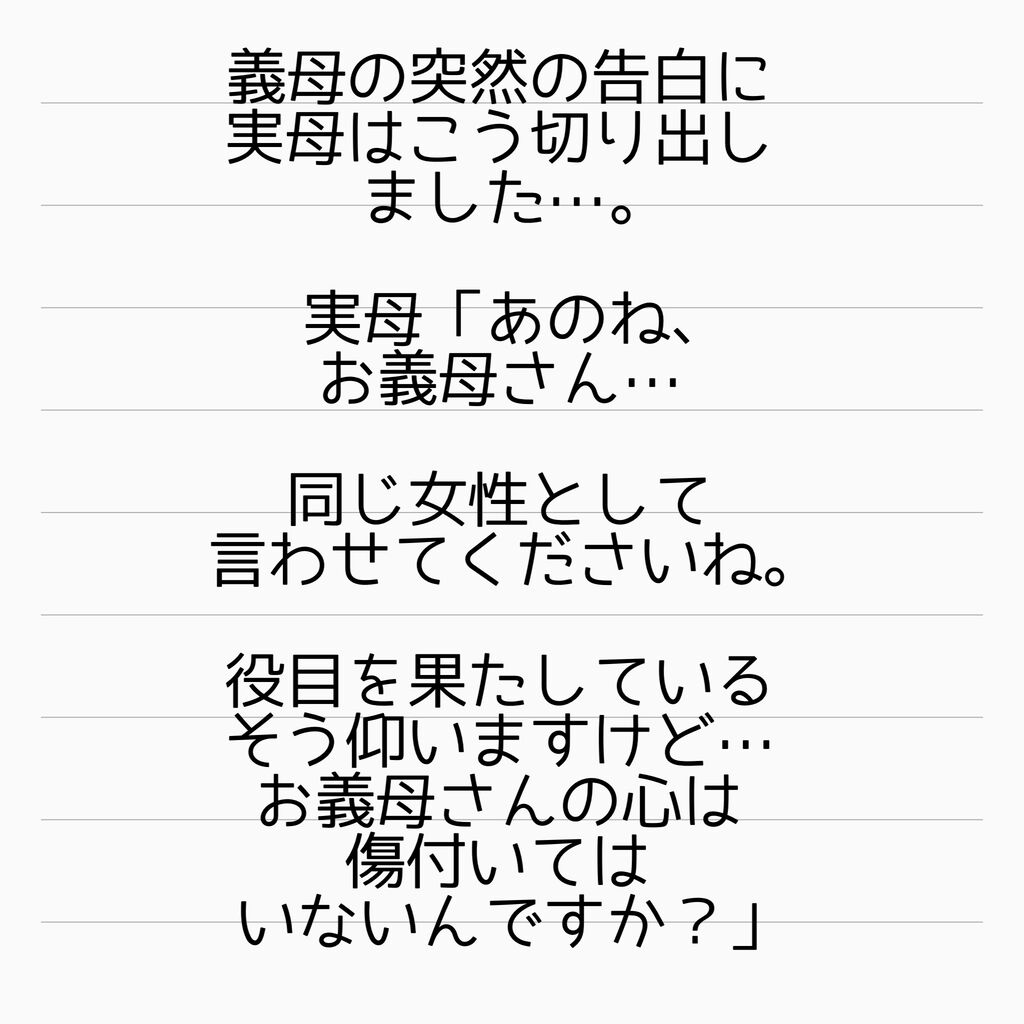 義母の突然の告白に
実母はこう切り出し
ました…。
実母「あのね、
お義母さん…
同じ女性として
言わせてくださいね。
役目を果たしている
そう仰いますけど…
お義母さんの心は
傷付いては
いないんですか？」